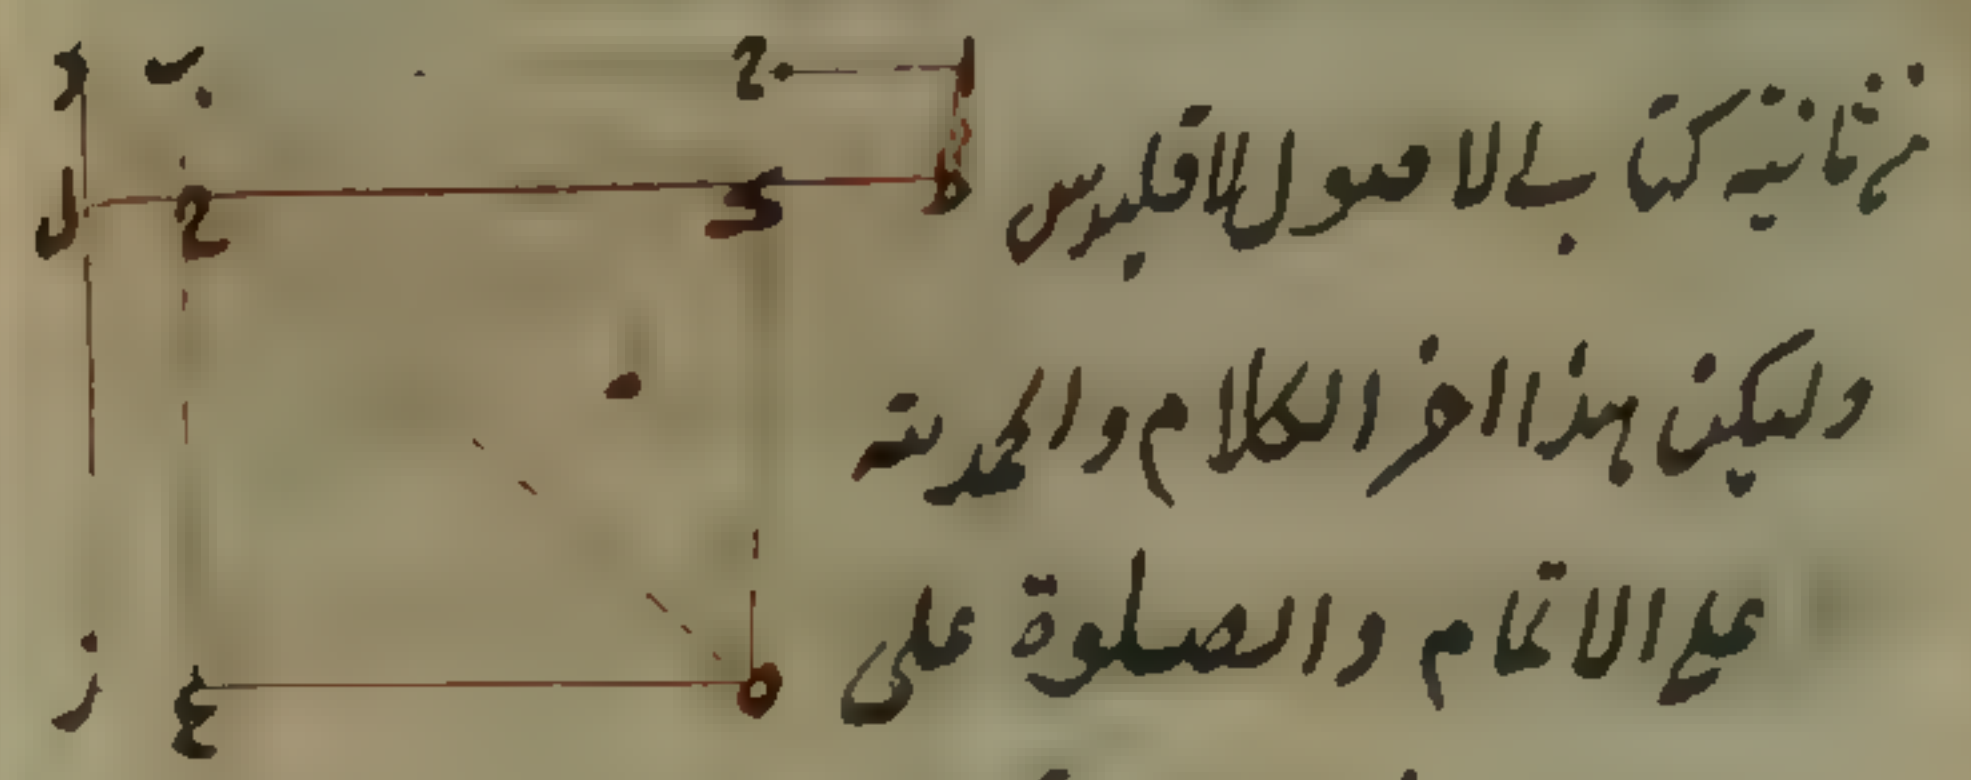 من ثانية كتاب الاصول لاقليدس
وليكن هذا اخر الكلام والحمد لله
على الاتمام والصلوة على
ا
ح
ب
د
ط
ك
ل
ه
ع
ز